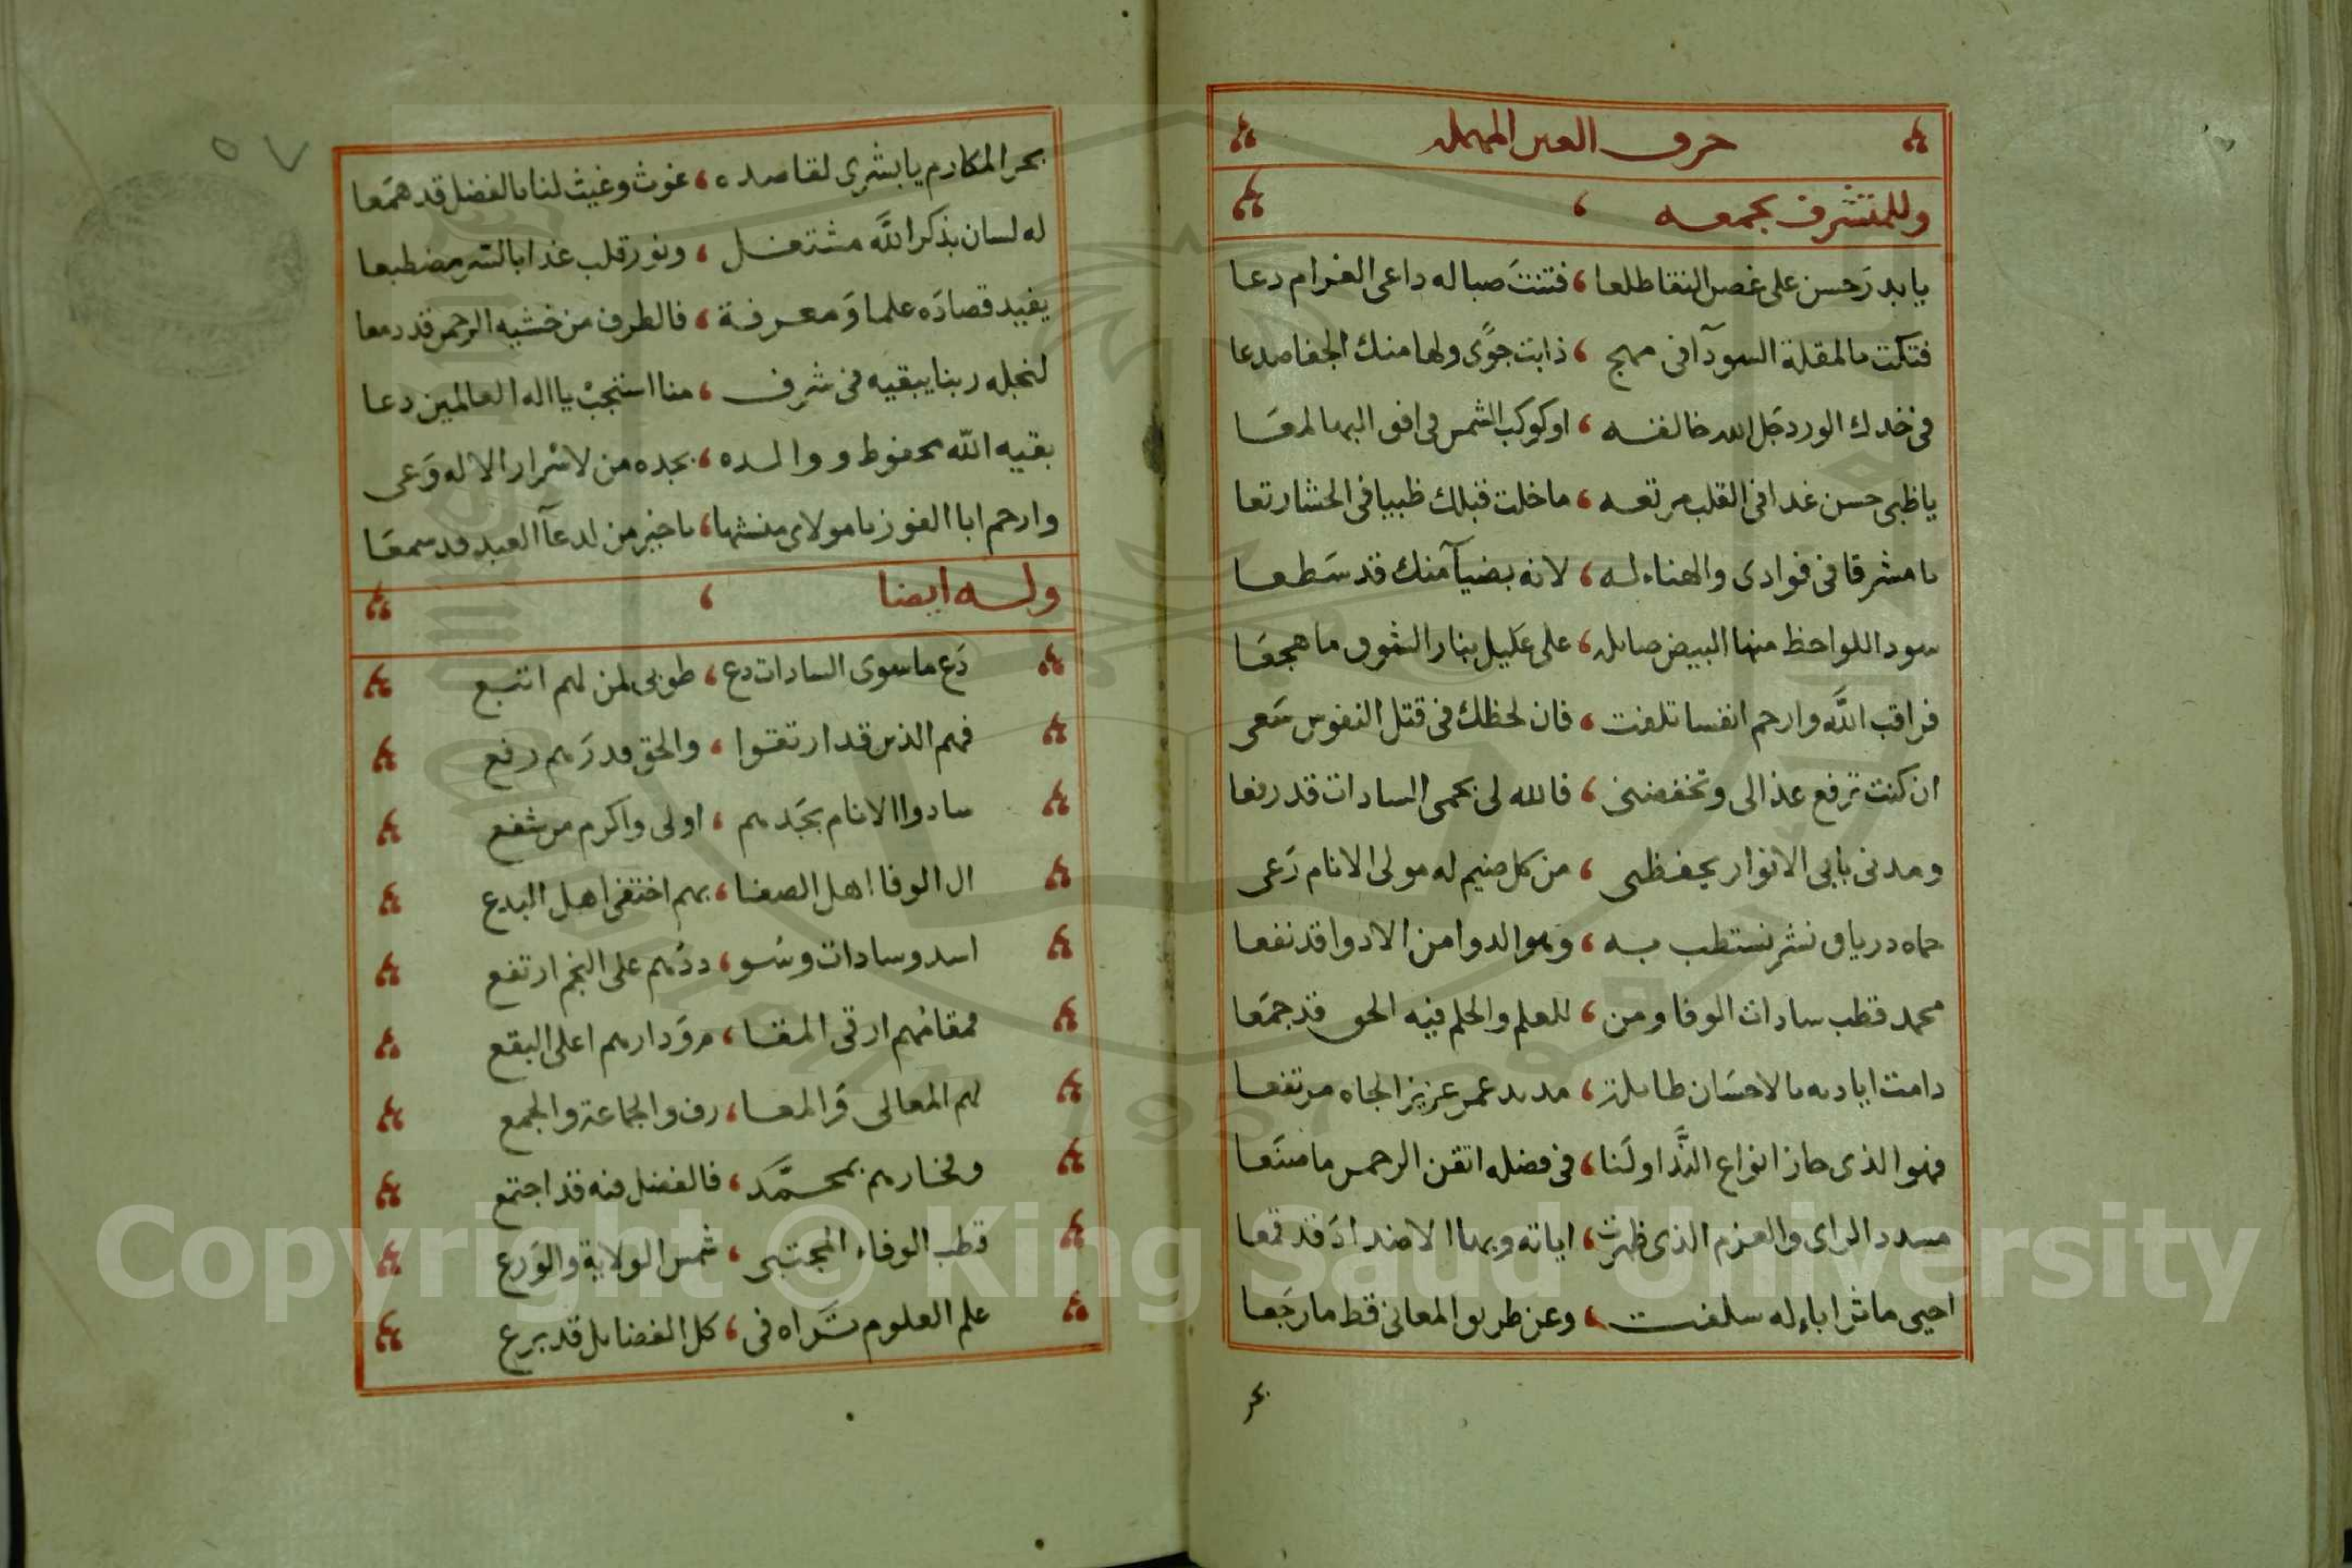 حرف العين المهمله
وللمتشرف بجمعه
يا بدر حسن على غصن النقا طلعا ، فتنت صبا له داعى الغرام دعا
فتكت بالمقلة السودآ فى مهج ، ذابت جوًى ولها منك الجفا صدعا
فى خدك الورد جل الله خالقه ، او كوكب الشمس فى افق البها لمعا
يا ظبى حسن غدا فى القلب مرتعه ، ما خلت قبلك ظبيا فى الحشا رتعا
يا مشرقا فى فوادى والهناء له ، لانه بضيآ منك قد سطعا
سود اللواحظ منها البيض صايله ، على عليل بنار الشوق ما هجعا
فراقب الله وارحم انفسا تلفت ، فان لحظك فى قتل النفوس سعى
ان كنت ترفع عذالى وتخفضنى ، فالله لى بحمى السادات قد رفعا
ومدنى بابى الانوار يحفظنى ، من كل ضيم له مولى الانام رعى
حماه درياق نشر نستطب به ، وهو الدوا من الادوا قد نفعا
محمد قطب سادات الوفا ومن ، للعلم والحلم فيه الحق قد جمعا
دامت اياديه بالاحسان طايلة ، مديد عمر عزيز الجاه مرتفعا
فهو الذى حاز انواع النَّدا ولنا ، فى فضله اتقن الرحمن ما صنعا
مسدد الراى والعزم الذى ظهرت ، اياته وبها الاضداد قد قمعا
احيى ماثر اباء له سلفت ، وعن طريق المعانى قط ما رجعا
بحر
٥٧
بحر المكارم يا بشرى لقاصده ، غوث وغيث لنا بالفضل قد همعا
له لسان بذكر الله مشتغل ، ونور قلب غدا بالسر مضطبعا
يفيد قصاده علما ومعرفة ، فالطرف من خشيه الرحمن قد دمعا
لنجله ربنا يبقيه فى شرف ، منا استجب يا اله العالمين دعا
بقيه الله محفوظ ووالده ، بجده من لاسرار الاله وعى
وارحم ابا الفوز يا مولاى منشئها ، يا خير من لدعآ العبد قد سمعا
وله ايضا
دع ما سوى السادات دع ، طوبى لمن لهم اتبع
فهم الذين قد ارتقوا ، والحق قدرهم رفع
سادوا الانام بجدهم ، اولى واكرم من شفع
ال الوفا اهل الصفا ، بهم اختفى اهل البدع
اسد وسادات وسو ، ددهم على النجم ارتفع
فمقامهم ارقى المقا ، م ودارهم اعلى البقع
لهم المعالى والمعا ، رف والجماعة والجمع
وفخارهم بمحمَّد ، فالفضل فيه قد اجتمع
قطب الوفاء المجتبى ، شمس الولاية والورع
علم العلوم تراه فى ، كل الفضايل قد برع
Copyright © King Saud University
1957